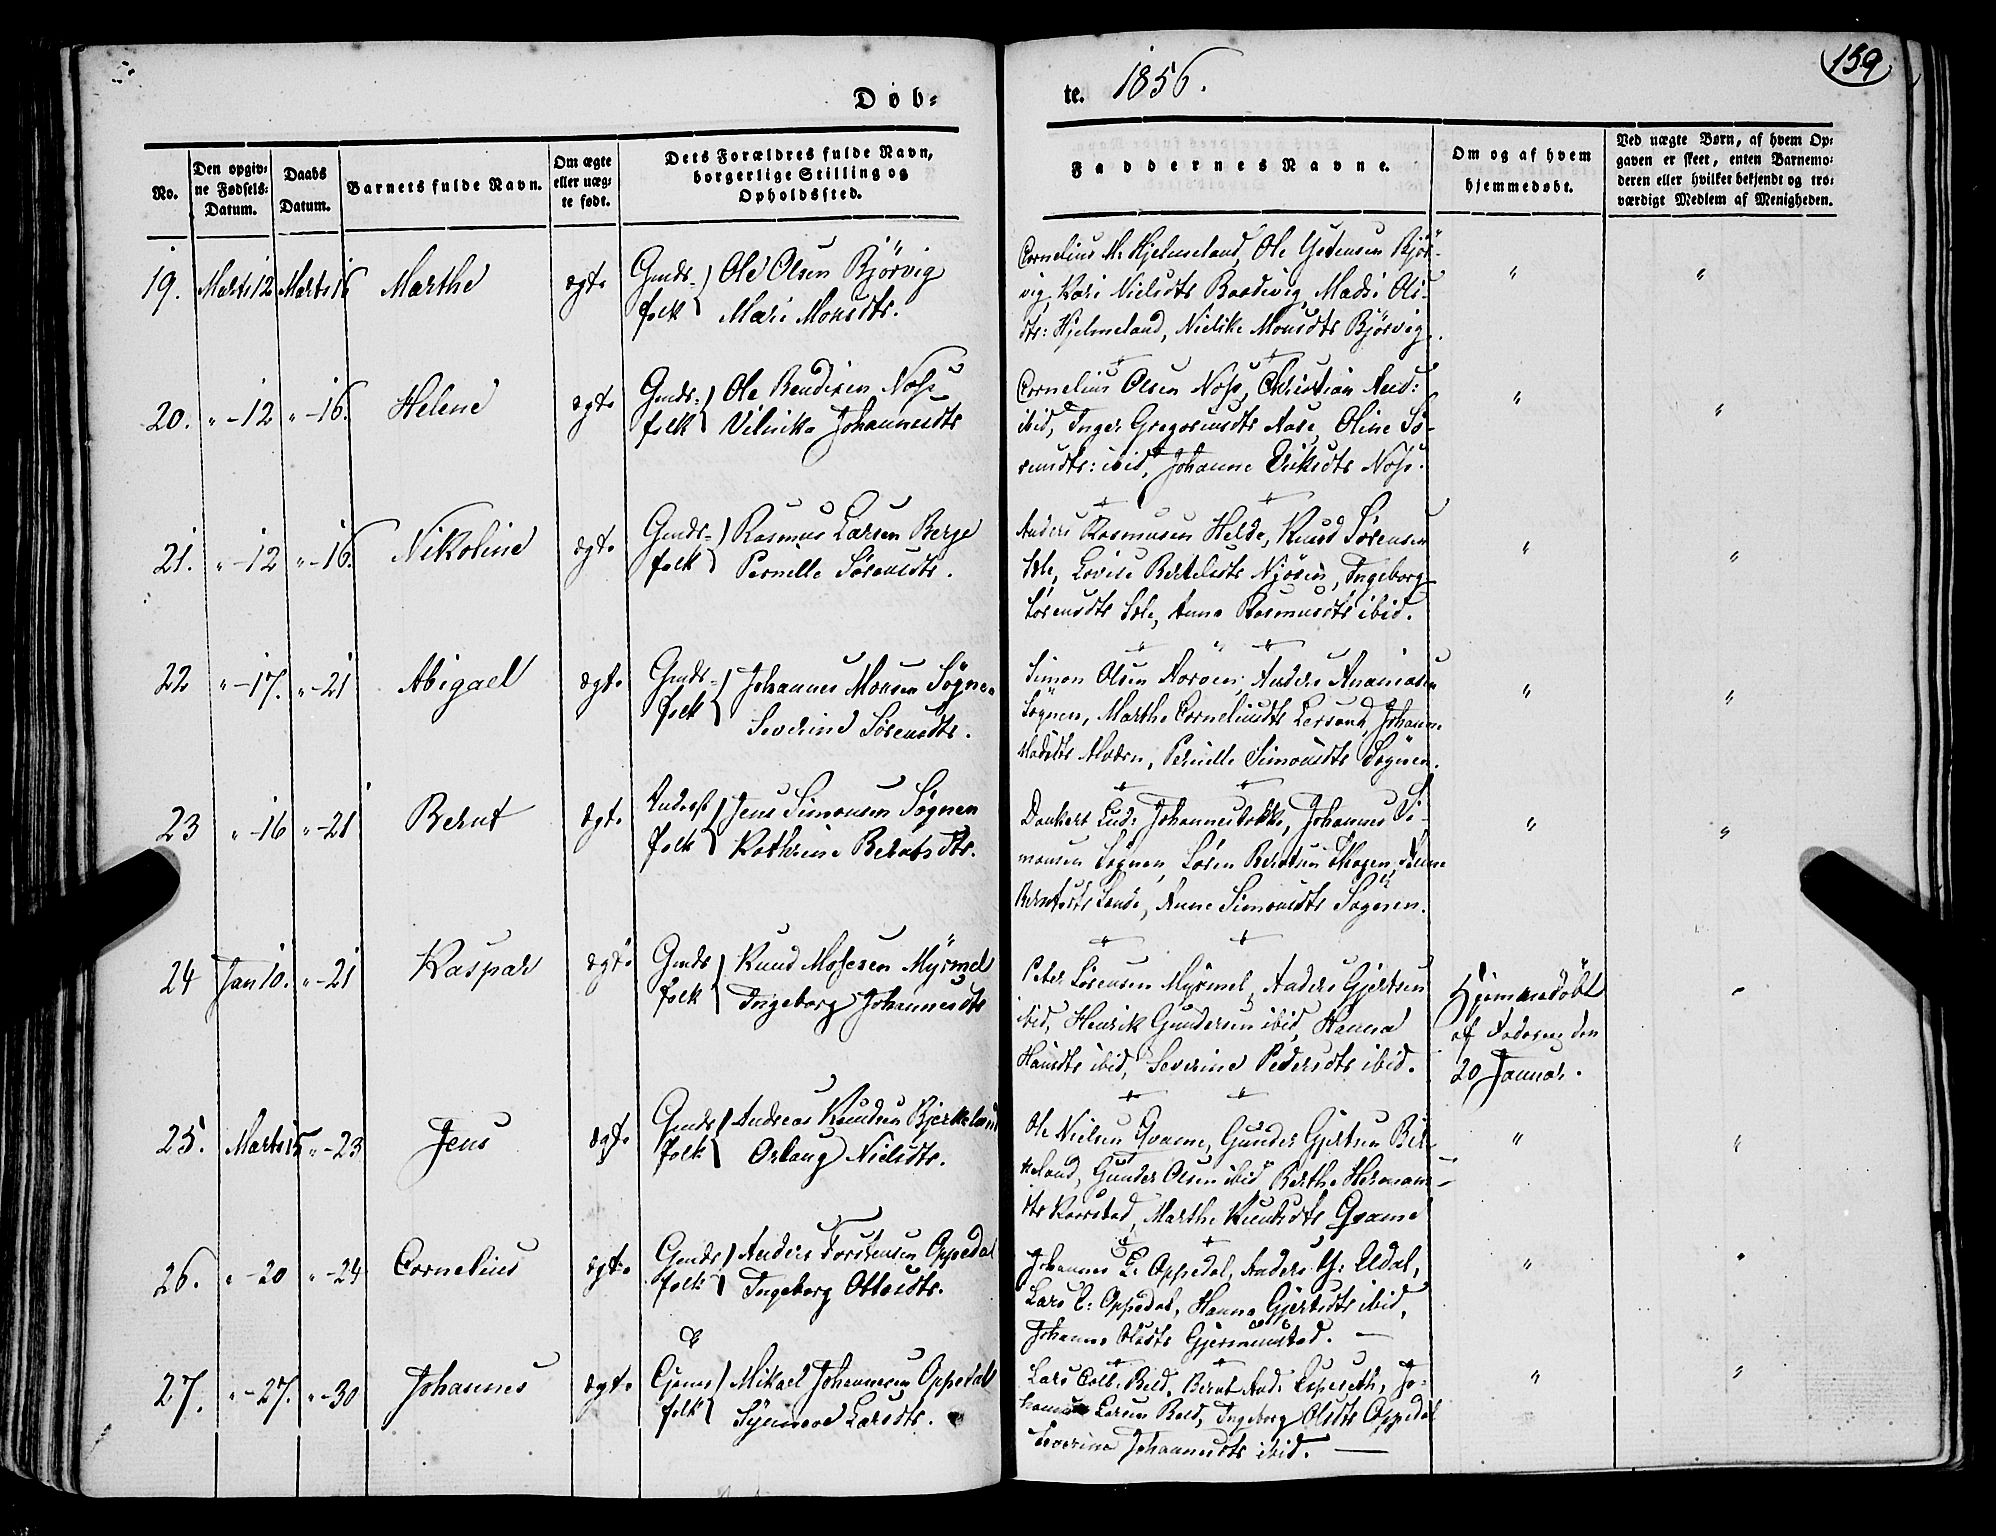 159
Døb-
te. 1856.
No.
Den opgiv-
ne Fødsels-
Datum.
Daabs
Datum.
Barnets fulde Navn.
Om ægte
eller uæg-
te født.
Dets Forældres fulde Navn,
borgerlige Stilling og
Opholdssted.
Faddernes Navne.
Om og af hvem
hjemmedøbt.
Ved uægte Børn, af hvem Op-
gaven er skeet, enten Barnemo-
deren eller hvilket bekjendt og tro-
værdigt Medlem af Menigheden.
19. Marts 12 Marts 16 Marthe ægte Gmds- folk Ole Olsen Björvig
Mari Monsdtr.
Cornelius M: Hjelmeland, Ole Björ-
vig, Kari Nielsdtr Baardvig, Madsi Ols-
dtr: Hjelmeland, Nielske Monsdtr Björvig.
" "
20. " -12 " -16. Helene ægte Gmds- folk Ole Bendixen Nose
Vilnike Johannesdtr
Cornelius Olsen Nose, Christian And:
ibid, Inger Gregoriusdtr Aase, Oline Sö-
rensdtr: ibid, Johanne Eriksdtr Nose.
" "
21. " -12 " -16. Nikoline ægte Gmds- folk Rasmus Larsen Berge
Pernille Sörensdtr.
Anders Rasmusen Helde, Knud Sörensen
Lovise Bertelsdtr Njösen, Ingeborg
Sörensdtr Anna Rasmusdtr ibid.
" "
22 " -17. " -21 Abigael ægte Gmds- folk Johannes Monsen Sögnen
Severine Sörensdtr.
Simon Olsen Anders Ananiasen
Sögnen, Marthe Corneliusdtr Johanne
Pernille Simonsdtr Sögnen.
" "
23 " -16 " -21 Bernt ægte Inderst folk Jens Simonsen Sögnen
Kathrine Berntsdtr.
Dankert Lud: Johannes Si-
monsen Sögnen, Sören Berntsen Anne
Berntsdtr Sande, Anne Simonsdtr Sögnen.
" "
24 Jan 10. " -21 Kaspar ægte Gmds folk Knud Mosesen Myrmel
Ingeborg Johannesdtr
Peter Sörensen Myrmel, Anders Gjertsen
ibid, Henrik Gundersen ibid, Hanna
Hansdtr ibid, Severine Pedersdtr ibid.
Hjemmedöbt
af Faderen den
20 Januar.
"
25. Marts 15 " -23 Jens ægte Gmds folk Andreas Knudsen Bjerkeland
Orlaug Nielsdtr.
Ole Nielsen Qvame, Gunder Gjertsen Bir-
keland, Gunder Olsen ibid Berthe Herman-
dtr Marthe Knudsdtr Qvame
" "
26. " -20 " -24 Cornelius ægte Gmds folk Anders Torstensen Oppedal
Ingeborg Ottesdtr.
Johannes L: Oppedal, Anders Udal,
Lars Oppedal, Hanna Gjertsdtr ibid,
Johanne Olsdtr Gjermundstad.
" "
27. " -27. " -30 Johannes ægte folk Mikael Johannesen Oppedal
Synneve Larsdtr.
Lars Coll: Bell, Bernt And: Espeseth, Jo-
Larsen Ingeborg Olsdtr Oppedal
Severine Johannesdtr ibid.
" "